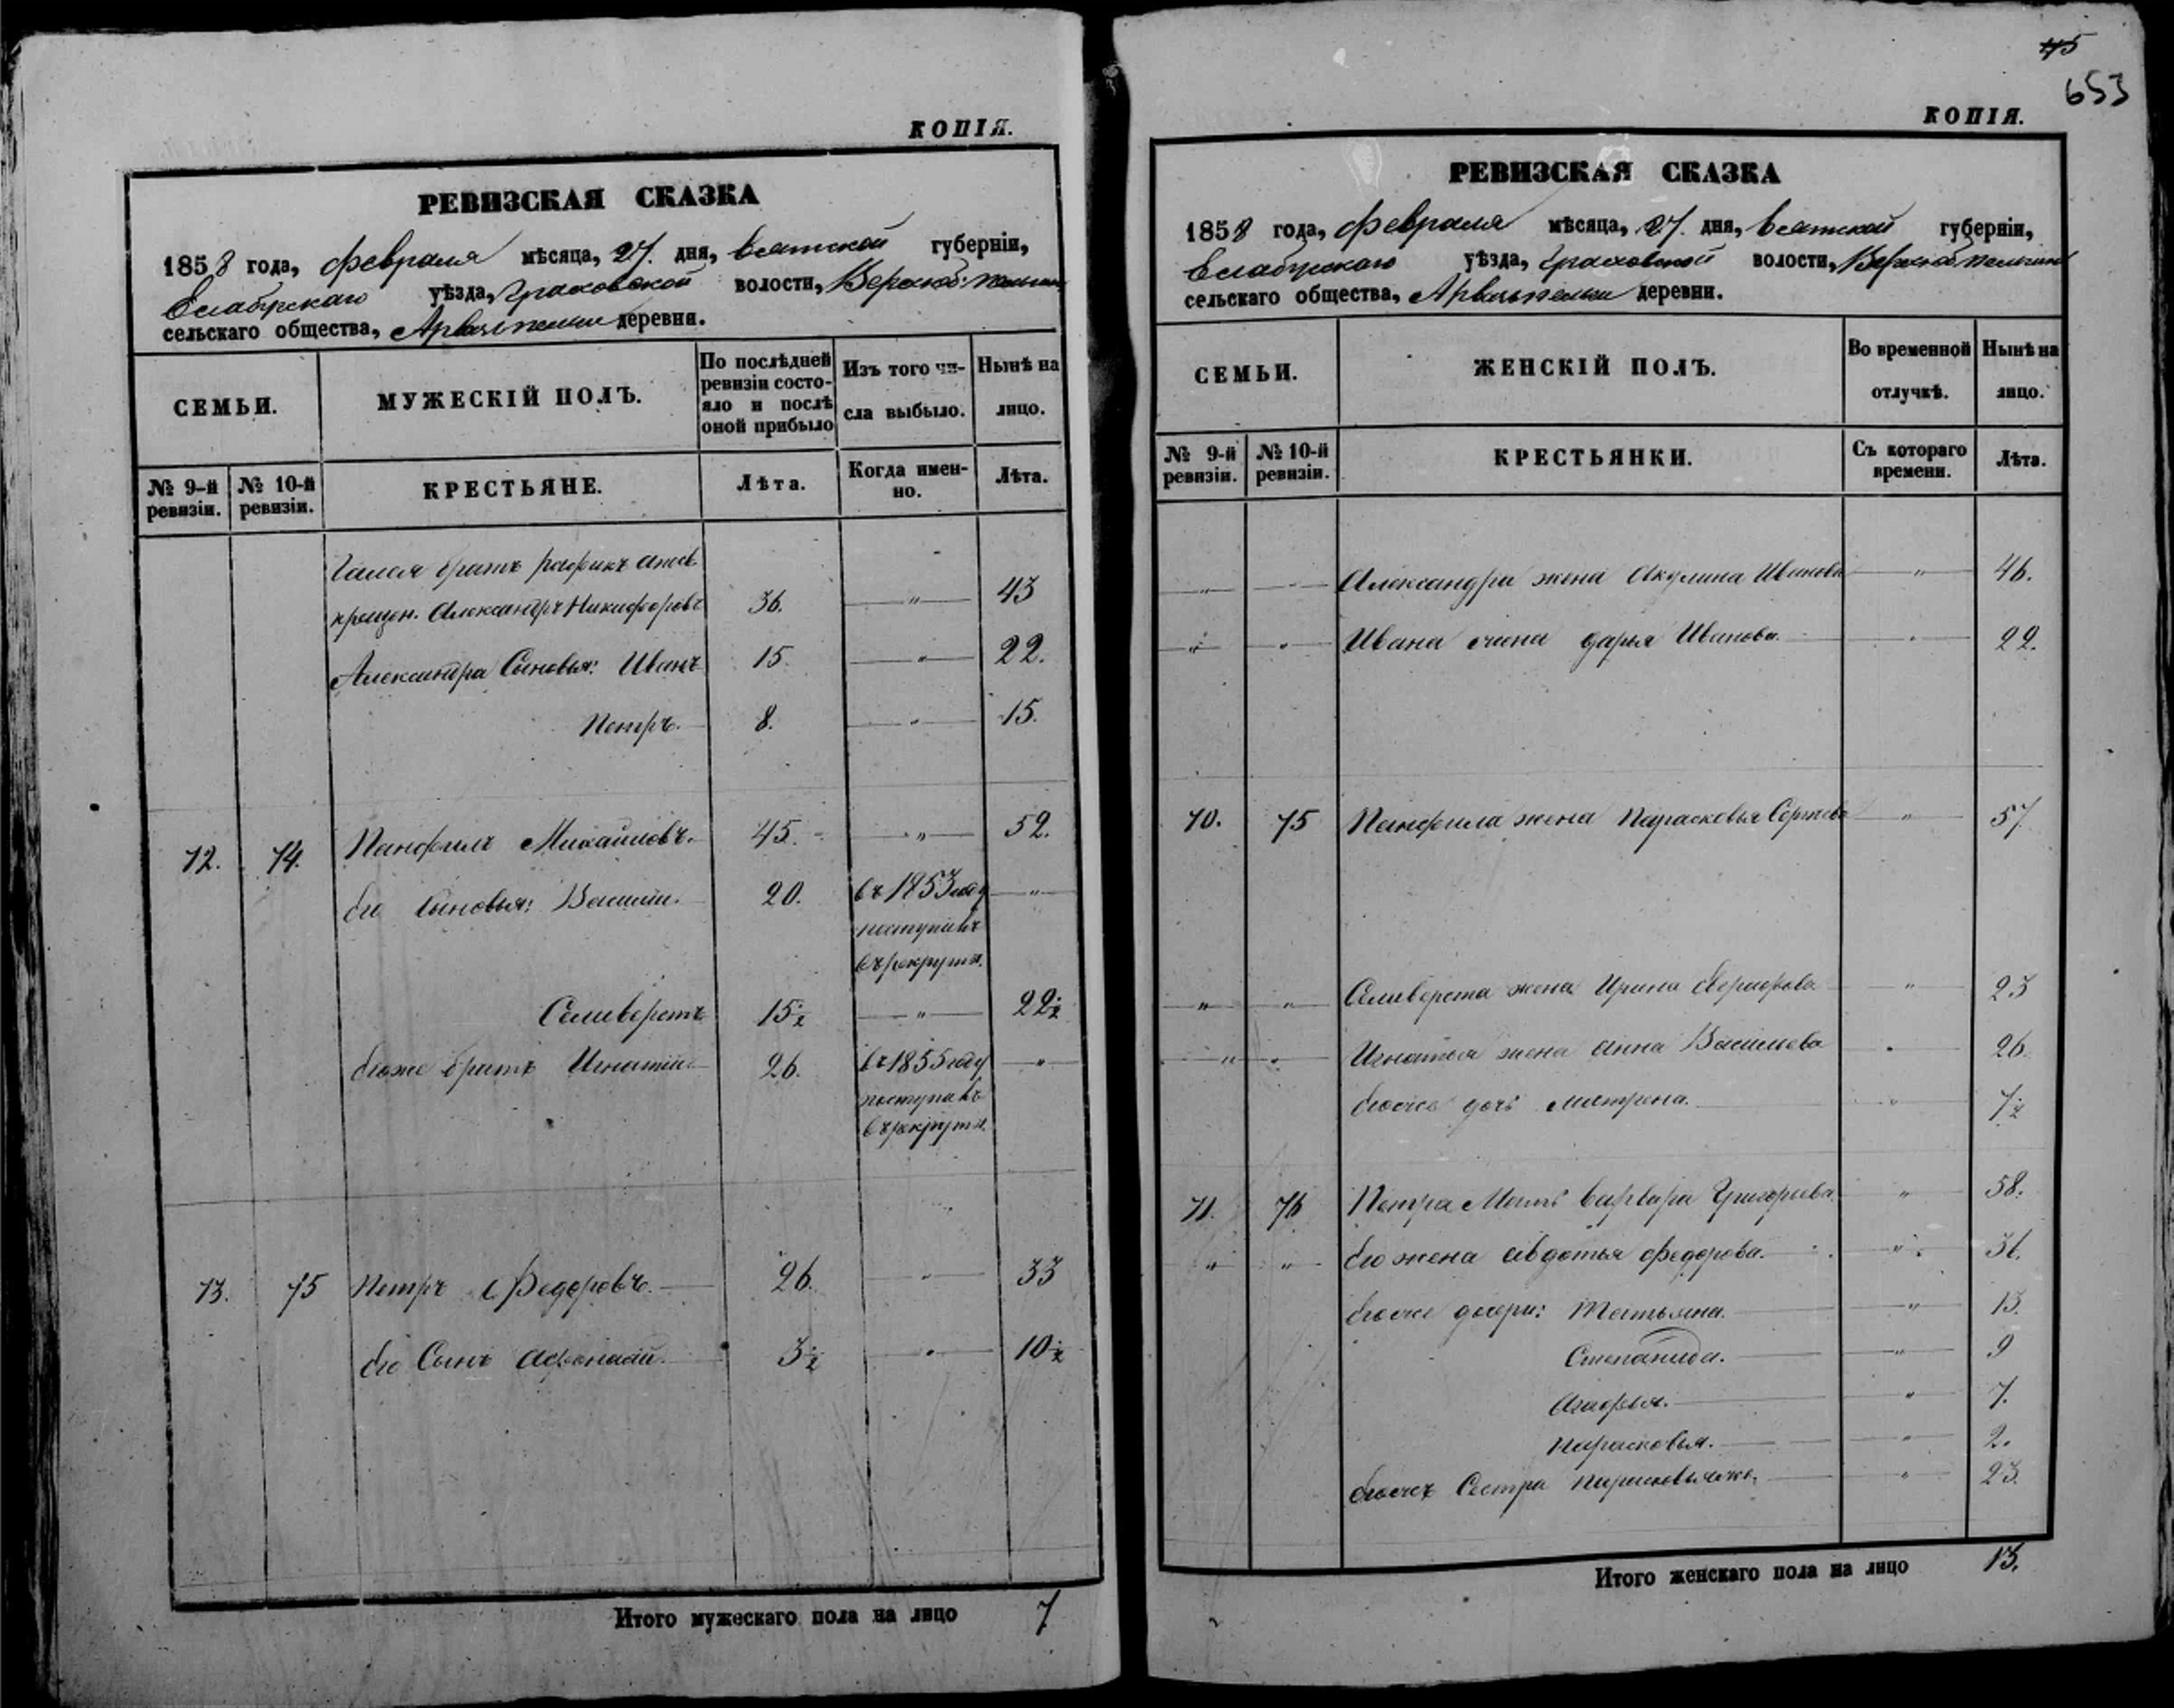 КОПІЯ.
РЕВИЗСКАЯ СКАЗКА
1858 года, февраля мѣсяца, 27. дня, Вятской губерніи,
Елабужскаго уѣзда, Граховской волости,
сельскаго общества, деревни.
СЕМЬИ.
МУЖЕСКІЙ ПОЛЪ.
По послѣдней ревизіи состояло и послѣ оной прибыло
Изъ того числа выбыло.
Нынѣ на лицо.
№ 9-й ревизіи.
№ 10-й ревизіи.
КРЕСТЬЯНЕ.
Лѣта.
Когда именно.
Лѣта.
братъ
крещен. Александръ Никифоровъ 36. " 43
Александра Сыновья: Иванъ 15. " 22.
Петръ. 8. " 15.
72. 74. Панфилъ Михайловъ. 45. " 52.
Его сыновья: Василій. 20. въ 1853 году "
поступилъ
въ рекруты.
Селиверстъ 15½ " 22½
Егоже братъ Игнатій 26. въ 1855 году "
поступилъ
въ рекруты.
73. 75 Петръ Федоровъ. 26. " 33
Его Сынъ Афонасій. 3½ " 10½
Итого мужескаго пола на лицо 7
45
653
КОПІЯ.
РЕВИЗСКАЯ СКАЗКА
1858 года, февраля мѣсяца, 27. дня, Вятской губерніи,
Елабужскаго уѣзда, Граховской волости,
сельскаго общества, деревни.
СЕМЬИ.
ЖЕНСКІЙ ПОЛЪ.
Во временной отлучкѣ.
Нынѣ на лицо.
№ 9-й ревизіи.
№ 10-й ревизіи.
КРЕСТЬЯНКИ.
Съ котораго времени.
Лѣта.
" " Александра жена Акулина Иванова " 46.
" " Ивана жена Дарья Иванова. " 22.
70. 75 Панфила жена Парасковья Сергѣева " 57
" " Селиверста жена Ирина " 23
" " Игнатья жена Анна Васильева " 26.
Егоже дочь Матрена. " 7½
71. 76 Петра Мать Варвара Григорьева. " 58.
" " Его жена Авдотья Федорова. " 36.
Егоже дочери: Татьяна. " 13.
Степанида. " 9
Агафья. " 7.
Парасковья. " 2.
Егоже Сестра " 23.
Итого женскаго пола на лицо 13.